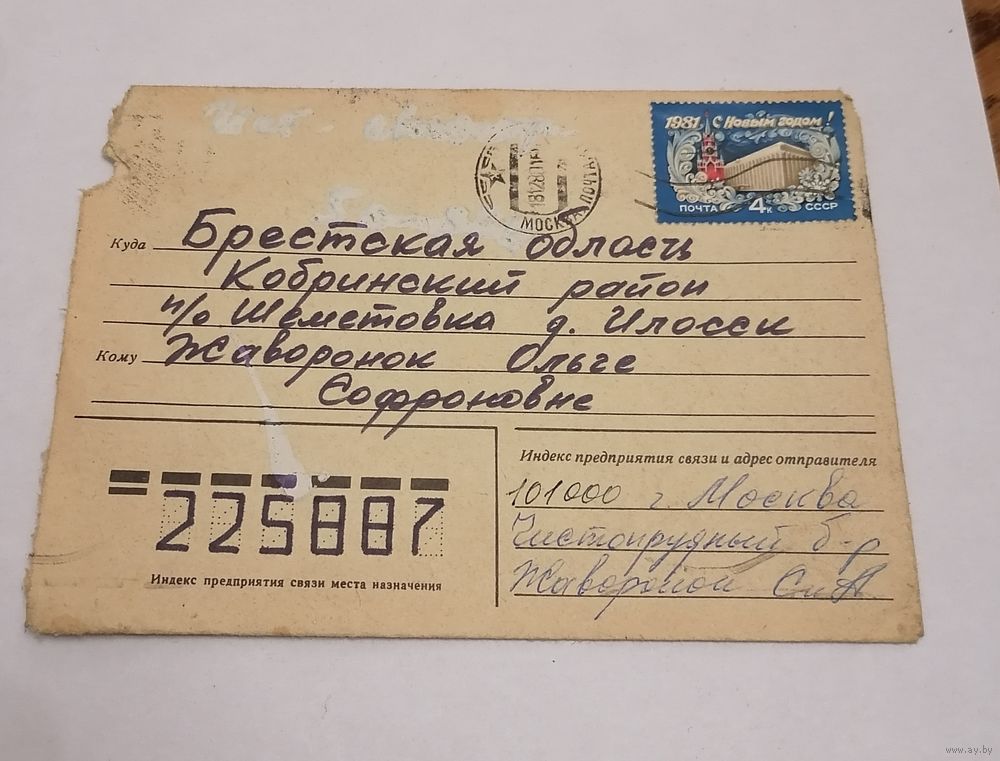 1981 С Новым годом!
ПОЧТА 4к СССР
МОСКВА ПОЧТА
Куда Брестская область
Кобринский район
п/о Шеметовка д. Илосск
Кому Жаворонок Ольге
Софроновне
Индекс предприятия связи и адрес отправителя
101000 г. Москва
Чистопрудный б-р
Жаворонок
225887
Индекс предприятия связи места назначения
www.ay.by